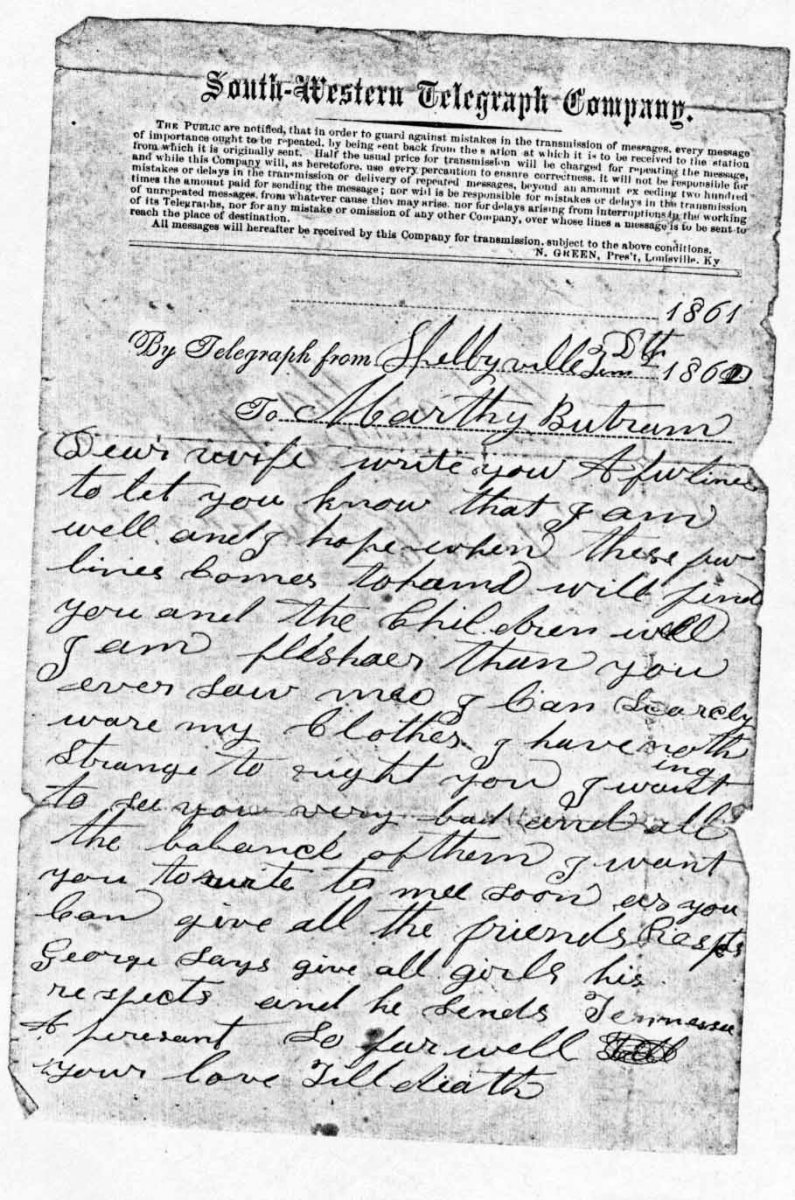 South-Western Telegraph Company.
THE PUBLIC are notified, that in order to guard against mistakes in the transmission of messages, every message
of importance ought to be repeated, by being sent back from the station at which it is to be received to the station
from which it is originally sent. Half the usual price for transmission will be charged for repeating the message,
and while this Company will, as heretofore, use every percaution to ensure correctness, it will not be responsible for
mistakes or delays in the transmission or delivery of repeated messages, beyond an amount ex eeding two hundred
times the amount paid for sending the message; nor will is be responsible for mistakes or delays in the transmission
of unrepeated messages, from whatever cause they may arise, nor for delays arising from interruptions in the working
of its Telegraphs, nor for any mistake or omission of any other Company, over whose lines a message is to be sent to
reach the place of destination.
All messages will hereafter be received by this Company for transmission, subject to the above conditions.
N. GREEN, Pres't, Louisville, Ky
1861
By Telegraph from Shelbyville Tenn 186
To Marthy Butram
Dear wife write you A fw lines
to let you know that I am
well and I hope when these fw
lines Comes to hand will find
you and the Children well
I am fleshaer than you
ever saw mee I Can Scarcly
ware my Clothes I have noth
ing
strange to right you I want
to see you very bad and all
the balance of them I want
you to write to mee soon as you
Can give all the friends Respts
George Says give all girls his
respects and he sends Tennessee
A peresant So far well
Your love Till death